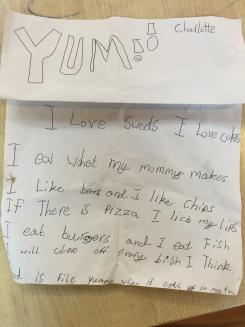 YUM!!
Charlotte
I Love Sweets I Love cakes
I eat what my mommy makes
I Like beans and I like Chips
IF There is Pizza I lick my lips
I eat burgers and I eat Fish
I will clean off every bish I Think
is File yummy when it ends up in my